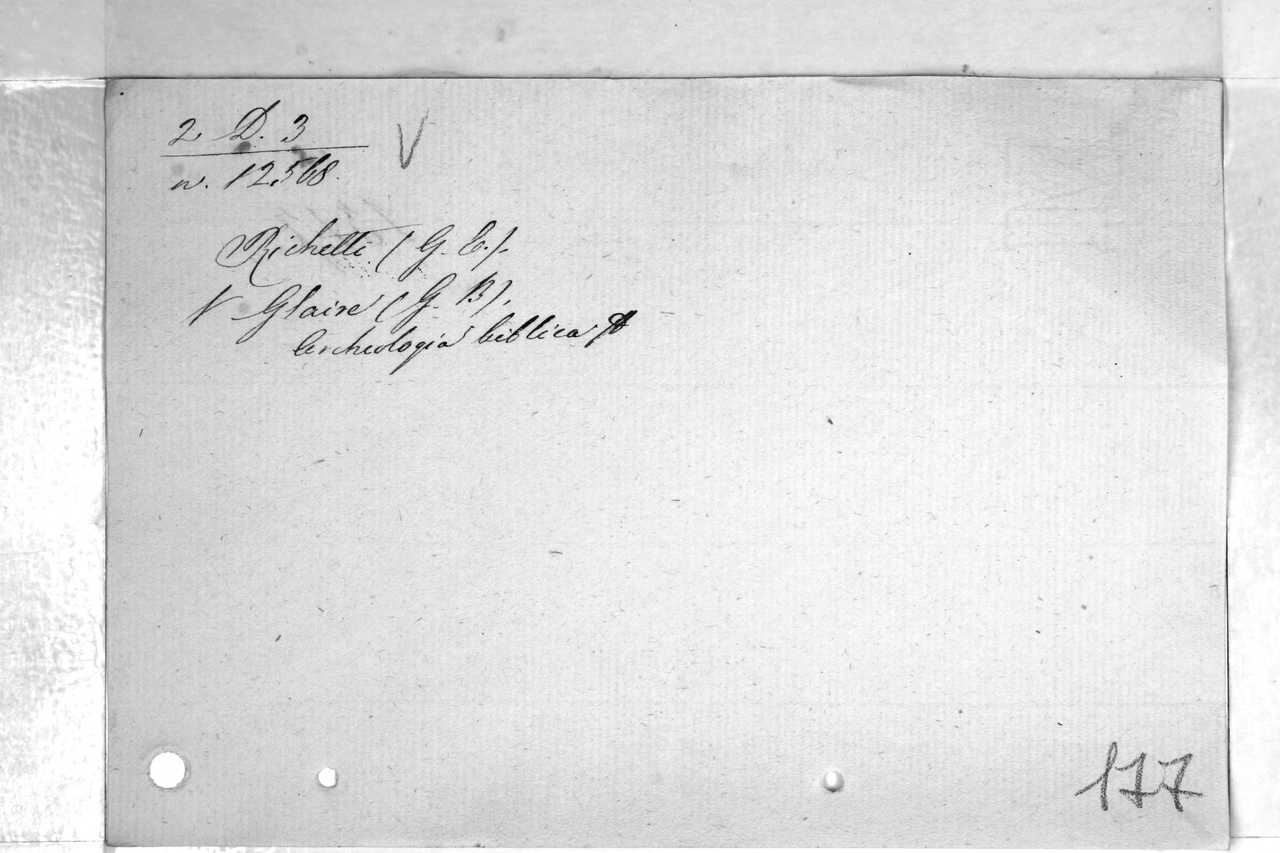 2 D. 3 V
n. 12568.
Richetti (G. E.).
V Glaire (G. B).
Archeologia biblica
177